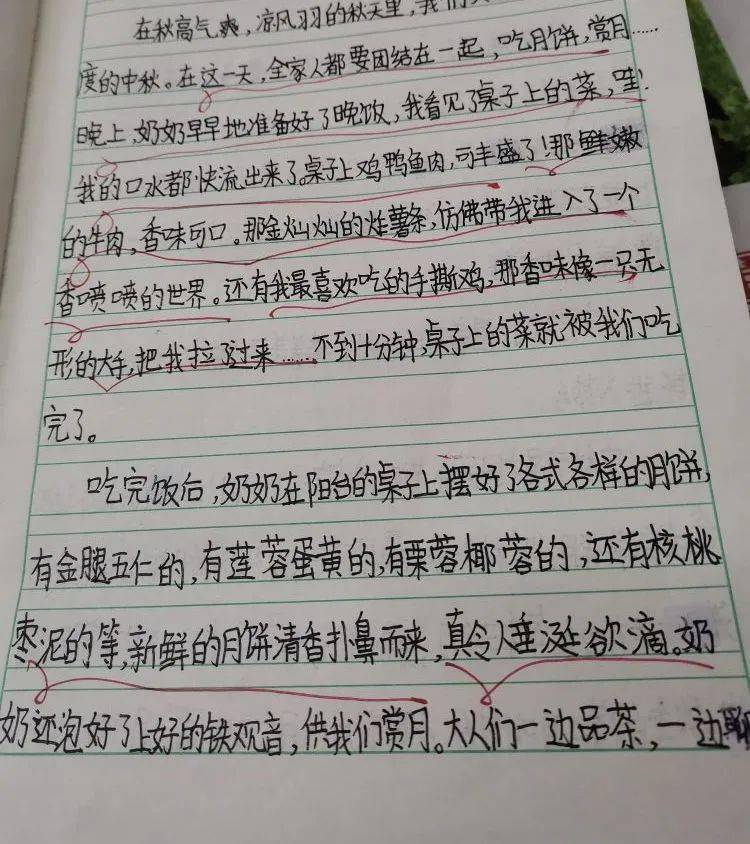 在秋高气爽，凉风习习的秋天里，我们
度的中秋。在这一天，全家人都要团结在一起，吃月饼，赏月……
晚上，奶奶早早地准备好了晚饭，我看见了桌子上的菜，哇！
我的口水都快流出来了。桌子上鸡鸭鱼肉，可丰盛了！那鲜嫩
的牛肉，香味可口。那金灿灿的炸薯条，仿佛带我进入了一个
香喷喷的世界。还有我最喜欢吃的手撕鸡，那香味像一只无
形的大手，把我拉了过来……不到十分钟，桌子上的菜就被我们吃
完了。
吃完饭后，奶奶在阳台的桌子上摆好了各式各样的月饼，
有金腿五仁的，有莲蓉蛋黄的，有栗蓉椰蓉的，还有核桃
枣泥的等，新鲜的月饼清香扑鼻而来，真令人垂涎欲滴。奶
奶还泡好了上好的铁观音，供我们赏月。大人们一边品茶，一边聊